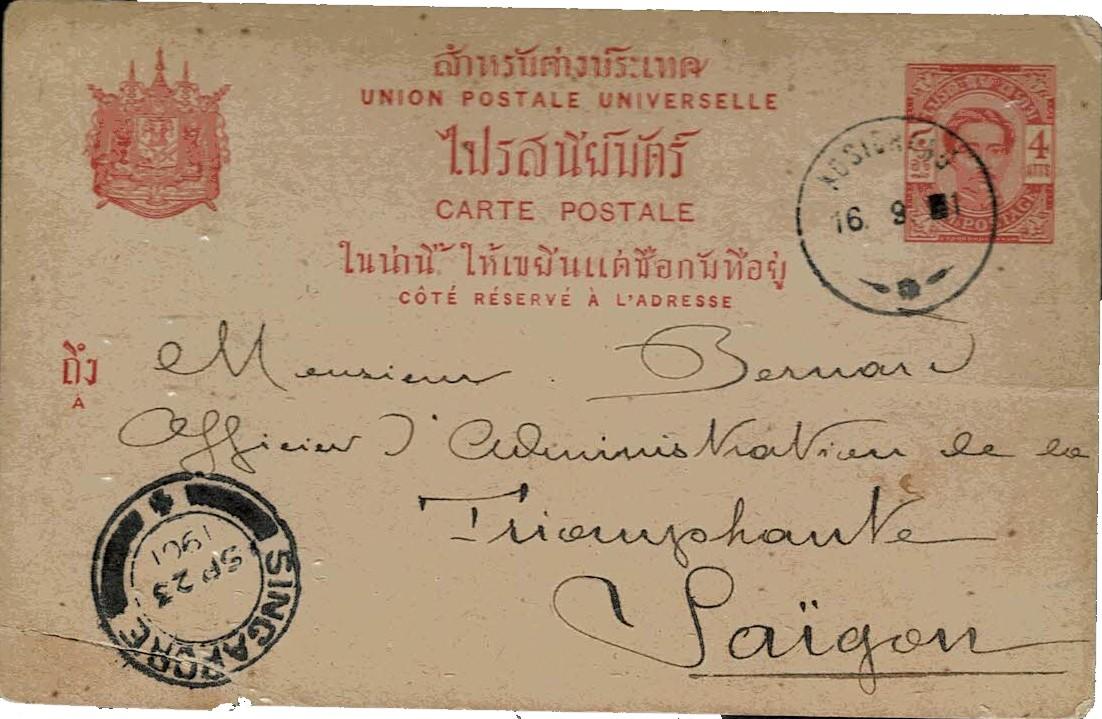 สำหรับต่างประเทศ
UNION POSTALE UNIVERSELLE
ไปรสนีย์บัตร์
CARTE POSTALE
ในน่านี้ ให้เขยีนแต่ชื่อกับที่อยู่
CÔTÉ RÉSERVÉ À L'ADRESSE
4
ATTS
POSTAGE
16. 9 1
ถึง
A
Monsieur Bernard
Officier d'Administration de la
Triomphante
Saïgon
SINGAPORE
SP 23
1901